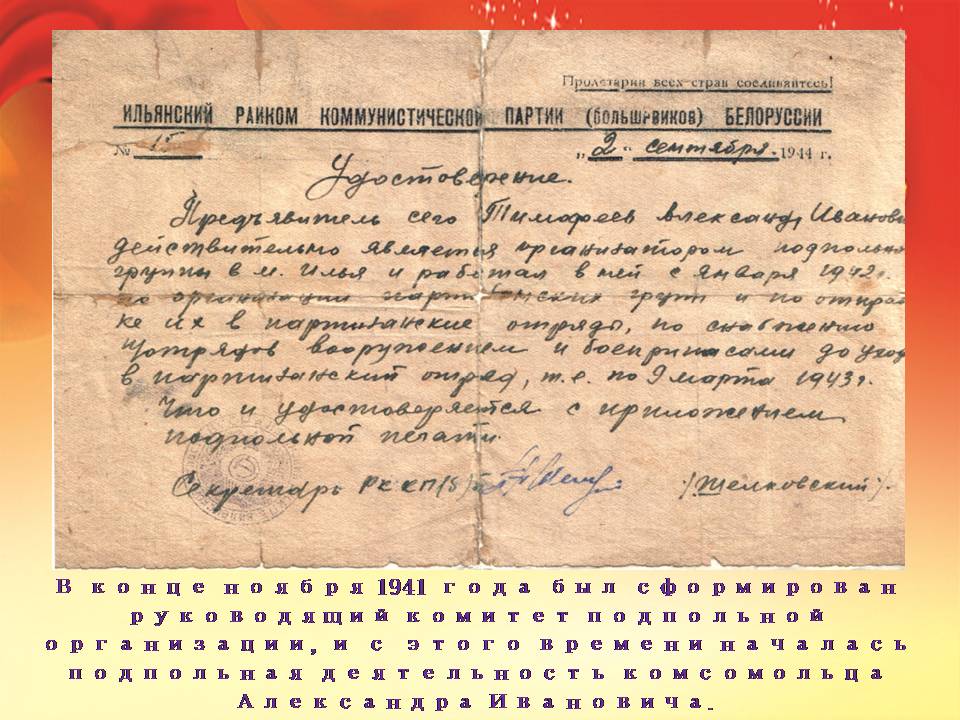 Пролетарии всех стран соединяйтесь!
ИЛЬЯНСКИЙ РАЙКОМ КОММУНИСТИЧЕСКОЙ ПАРТИИ (большевиков) БЕЛОРУССИИ
№ 15 „2" сентября 1944 г.
Удостоверение.
Предъявитель сего Тимофеев Александр Иванович
действительно является организатором подпольной
группы в м. Илья и работал в ней с января 1942 г.
по организации партизанских групп и по отправ
ке их в партизанские отряды, по снабжению
отрядов вооружением и боеприпасами до ухода
в партизанский отряд, т.е. по 9 марта 1943 г.
Что и удостоверяется с приложением
подпольной печати.
Секретарь РК КП(б)Б /Шелковский/.
В конце ноября 1941 года был сформирован
руководящий комитет подпольной
организации, и с этого времени началась
подпольная деятельность комсомольца
Александра Ивановича.